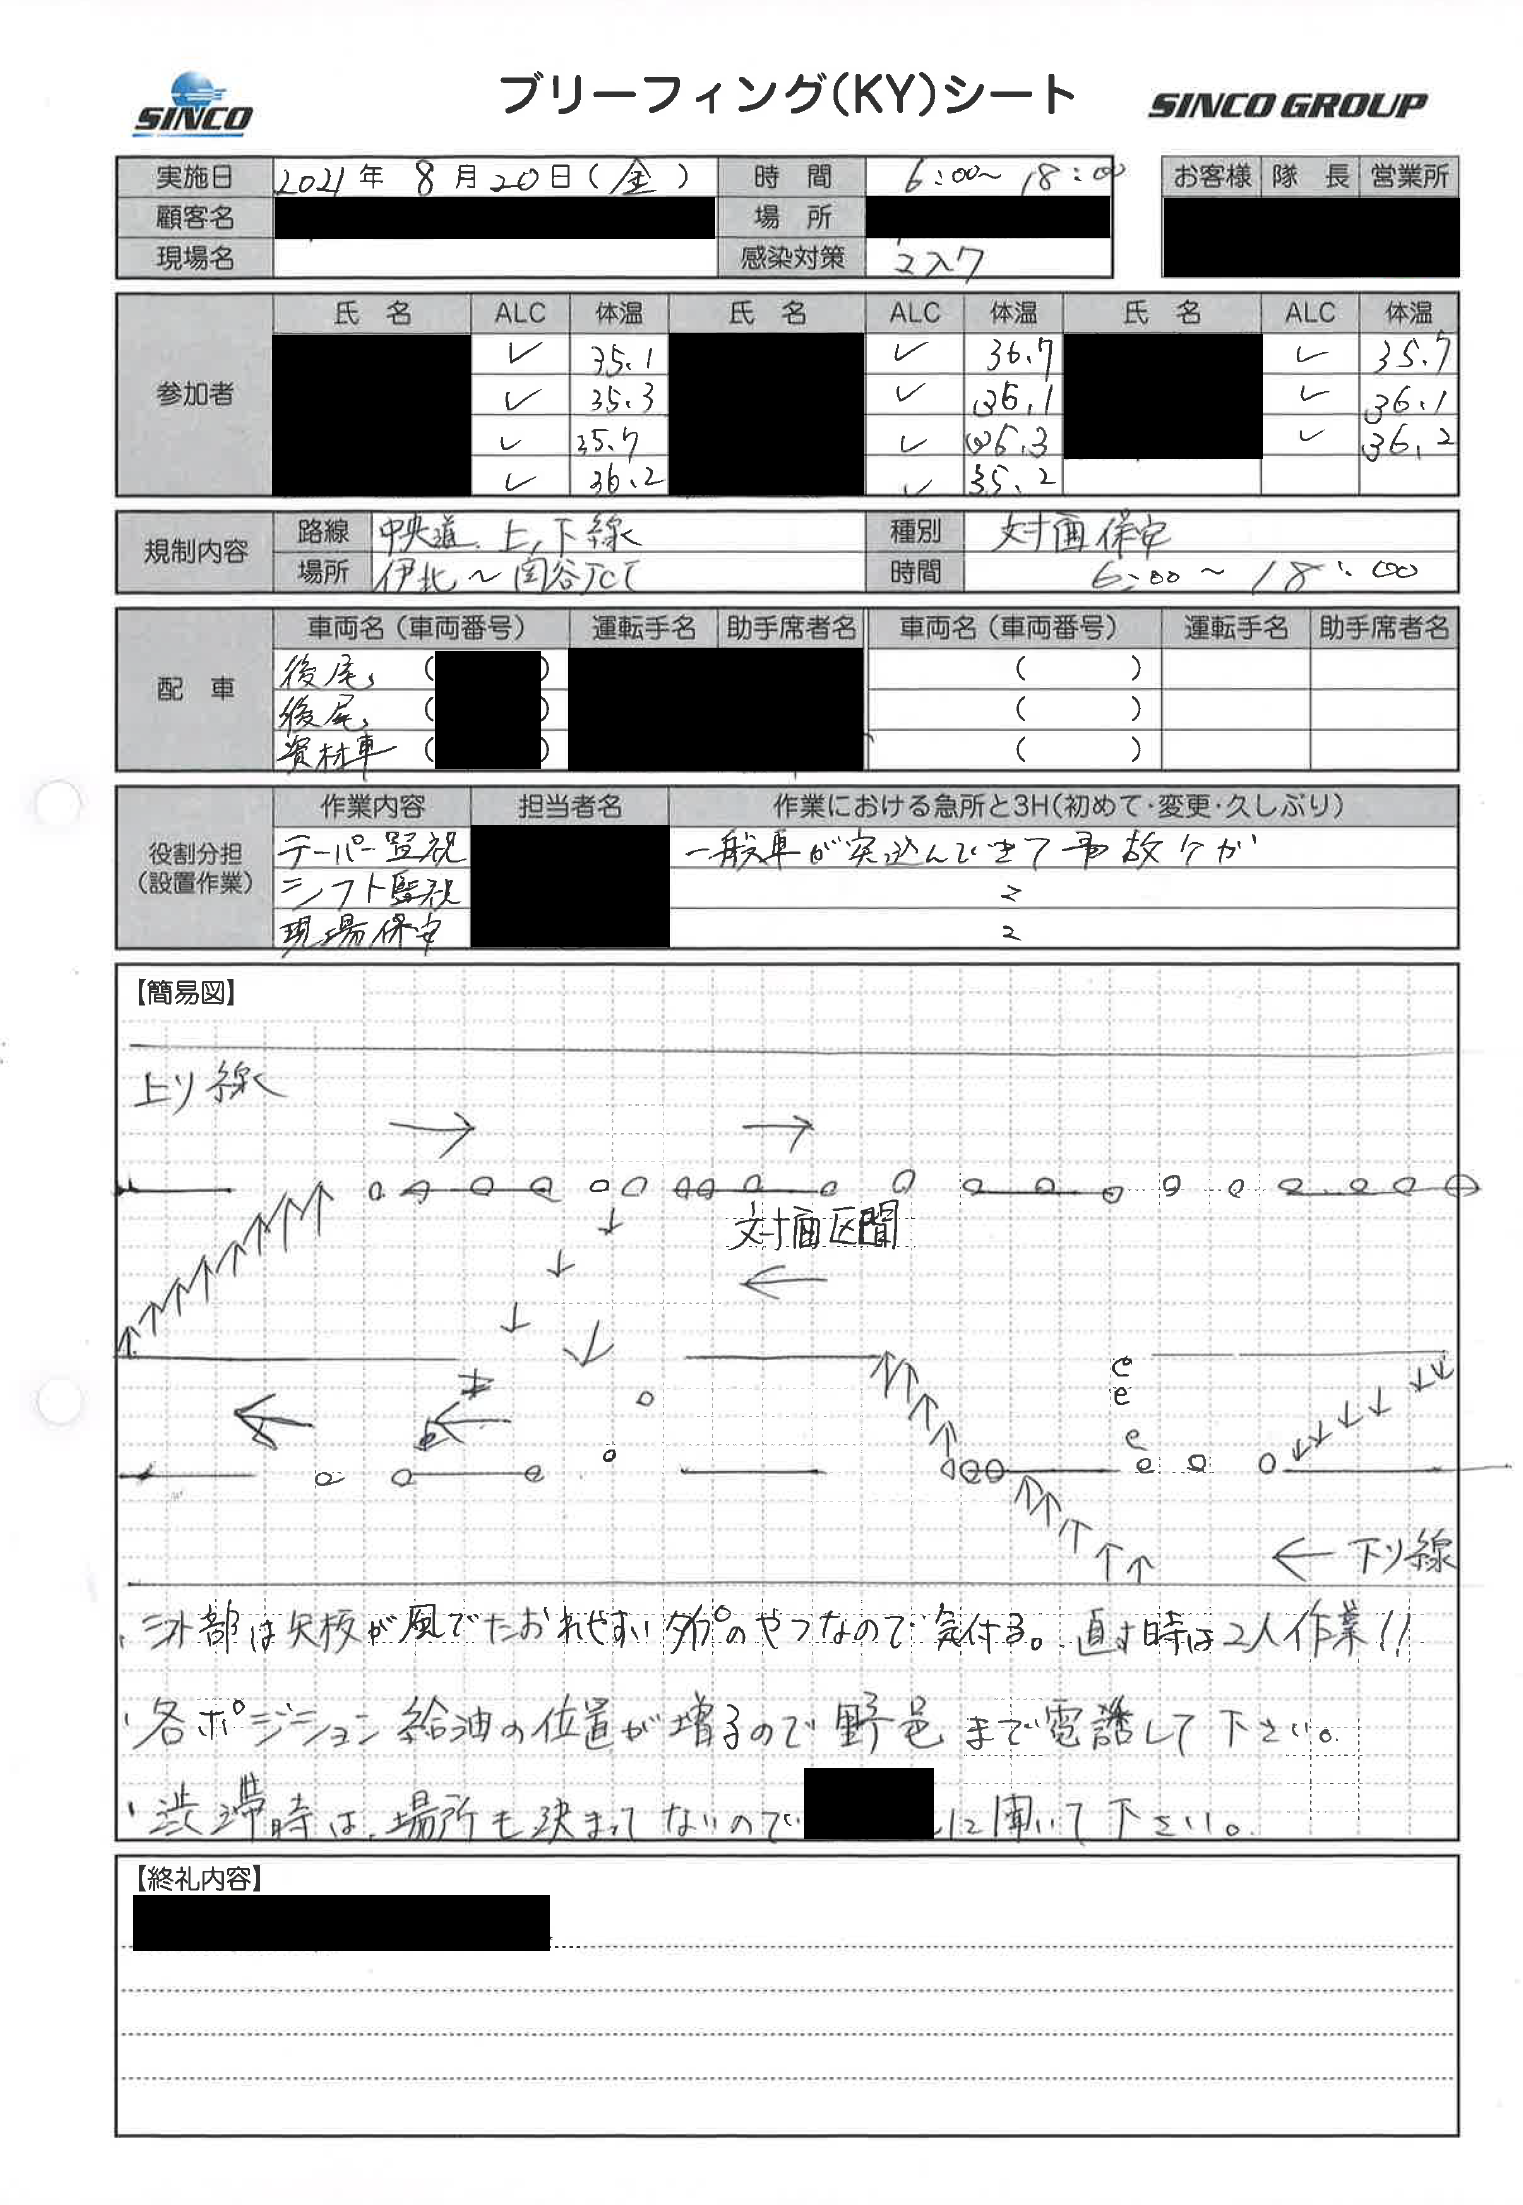 SINCO
ブリーフィング(KY)シート
SINCO GROUP
実施日 2021年 8月20日(金) 時 間 6:00〜18:00 お客様 隊 長 営業所
顧客名 場 所
現場名 感染対策 マスク
氏 名 ALC 体温 氏 名 ALC 体温 氏 名 ALC 体温
参加者
✓ 35.1 ✓ 36.7 ✓ 35.7
✓ 35.3 ✓ 36.1 ✓ 36.1
✓ 35.7 ✓ 36.3 ✓ 36.2
✓ 36.2 ✓ 35.2
規制内容 路線 中央道 上,下線 種別 対面保安
場所 伊北〜岡谷JCT 時間 6:00〜18:00
配 車 車両名(車両番号) 運転手名 助手席者名 車両名(車両番号) 運転手名 助手席者名
後尾 ( ) ( )
後尾 ( ) ( )
資材車 ( ) ( )
役割分担(設置作業) 作業内容 担当者名 作業における急所と3H(初めて・変更・久しぶり)
テーパー監視 一般車が突込んできて事故ケガ
シフト監視 〃
現場保安 〃
【簡易図】
上り線
対面区間
下り線
は矢板が風でたおれやすいタイプのやつなので気付る。直す時は2人作業!!
各ポジション給油の位置が増るので野邑まで電話して下さい。
渋滞時は、場所も決まってないので に聞いて下さい。
【終礼内容】